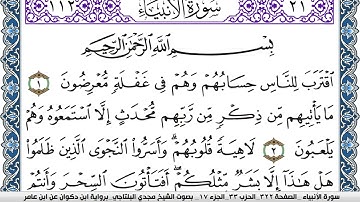 ١١٢ سُورَةُ الأَنبِيَاءِ ٢١
بِسْمِ اللَّهِ الرَّحْمَٰنِ الرَّحِيمِ
ٱقْتَرَبَ لِلنَّاسِ حِسَابُهُمْ وَهُمْ فِي غَفْلَةٍ مُّعْرِضُونَ ١
مَا يَأْتِيهِم مِّن ذِكْرٍ مِّن رَّبِّهِم مُّحْدَثٍ إِلَّا ٱسْتَمَعُوهُ وَهُمْ
يَلْعَبُونَ ٢ لَاهِيَةً قُلُوبُهُمْ وَأَسَرُّوا۟ ٱلنَّجْوَى ٱلَّذِينَ ظَلَمُوا۟
هَلْ هَٰذَا إِلَّا بَشَرٌ مِّثْلُكُمْ أَفَتَأْتُونَ ٱلسِّحْرَ وَأَنتُمْ
سورة الأنبياء الصفحة ٣٢٢ الحزب ٣٣ الجزء ١٧ بصوت الشيخ مجدي البلتاجي برواية ابن ذكوان عن ابن عامر